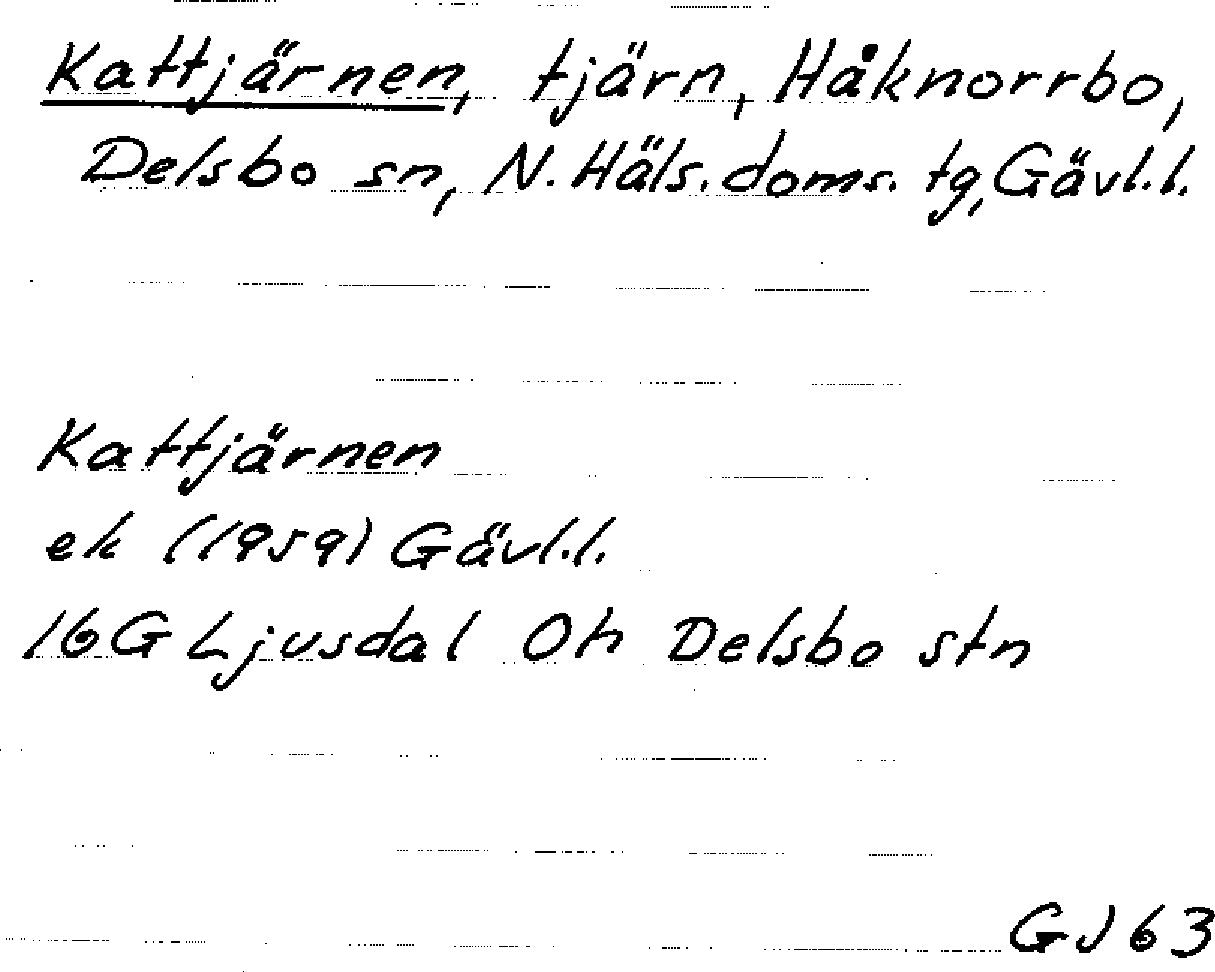 Kattjärnen, tjärn, Håknorrbo,
Delsbo sn, N. Häls. doms. tg, Gävl.l.
Kattjärnen
ek (1959) Gävl.l.
16G Ljusdal 0h Delsbo stn
GJ 63